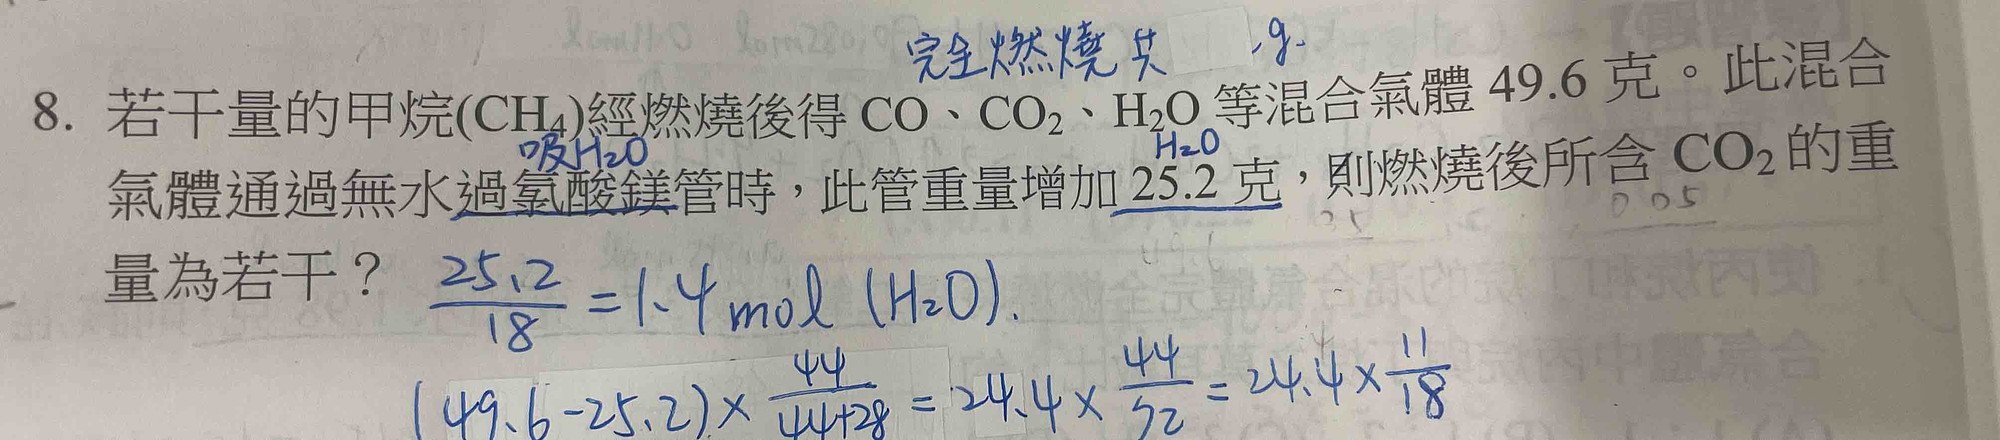 完全燃燒共 .g.
8. 若干量的甲烷(CH₄)經燃燒後得 CO、CO₂、H₂O 等混合氣體 49.6 克。此混合
吸H₂O H₂O
氣體通過無水過氯酸鎂管時，此管重量增加 25.2 克，則燃燒後所含 CO₂ 的重
量為若干？ 25.2/18 = 1.4 mol (H₂O).
(49.6-25.2)× 44/44+28 = 24.4× 44/72 = 24.4× 11/18